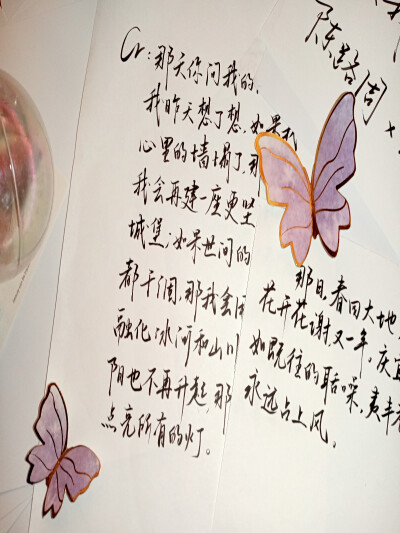 陈
周
Cr:那天你问我的,
我昨天想了想,如果
心里的墙塌了,那
我会再建一座更坚
城堡;如果世间的
都干涸,那我会用
融化冰河和山川
阳也不再升起,那
点亮所有的灯。
那日,春回大地,
花开花谢又一年,庆宜
如既往的聒噪,
永远占上风。